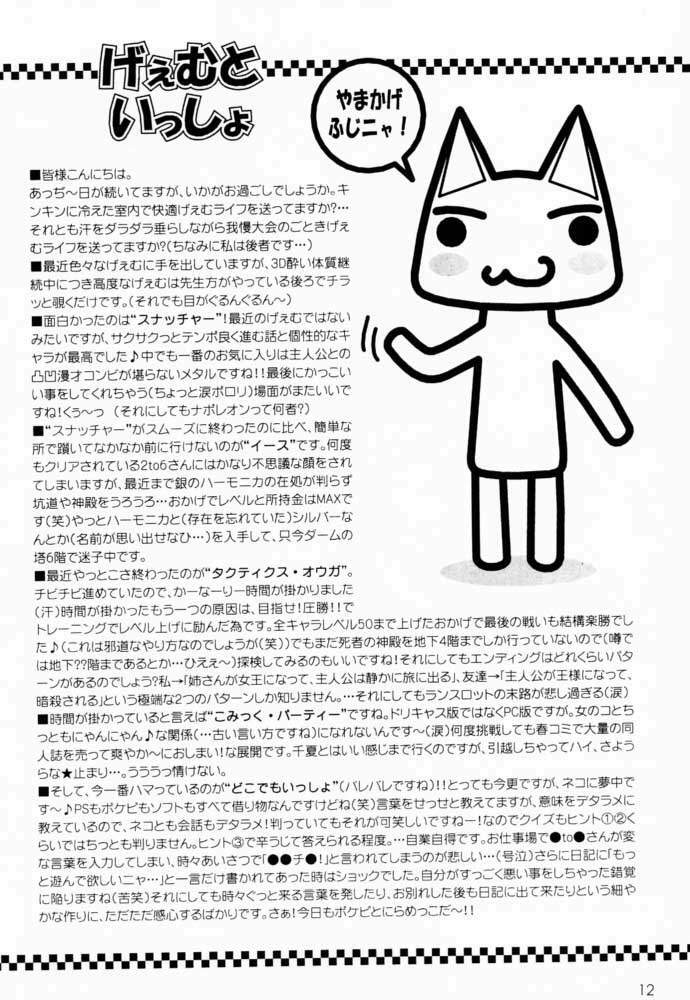 げぇむと
いっしょ
やまかげ
ふじニャ！
■皆様こんにちは。
あっぢ〜日が続いてますが、いかがお過ごしでしょうか。キ
ンキンに冷えた室内で快適げぇむライフを送ってますか?…
それとも汗をダラダラ垂らしながら我慢大会のごときげぇ
むライフを送ってますか?(ちなみに私は後者です…)
■最近色々なげぇむに手を出していますが、3D酔い体質継
続中につき高度なげぇむは先生方がやっている後ろでチラ
ッと覗くだけです。(それでも目がぐるんぐるん〜)
■面白かったのは“スナッチャー”!最近のげぇむではない
みたいですが、サクサクっとテンポ良く進む話と個性的なキ
ャラが最高でした♪中でも一番のお気に入りは主人公との
凸凹漫才コンビが堪らないメタルですね!!最後にかっこい
い事をしてくれちゃう(ちょっと涙ポロリ)場面がまたいいで
すね!くぅ〜っ　(それにしてもナポレオンって何者?)
■“スナッチャー”がスムーズに終わったのに比べ、簡単な
所で躓いてなかなか前に行けないのが“イース”です。何度
もクリアされている2to6さんにはかなり不思議な顔をされ
てしまいますが、最近まで銀のハーモニカの在処が判らず
坑道や神殿をうろうろ…おかげでレベルと所持金はMAXで
す(笑)やっとハーモニカと(存在を忘れていた)シルバーな
んとか(名前が思い出せなひ…)を入手して、只今ダームの
塔6階で迷子中です。
■最近やっとこさ終わったのが“タクティクス・オウガ”。
チビチビ進めていたので、かーなーり一時間が掛かりました
(汗)時間が掛かったもう一つの原因は、目指せ!圧勝!!で
トレーニングでレベル上げに励んだ為です。全キャラレベル50まで上げたおかげで最後の戦いも結構楽勝でし
た♪(これは邪道なやり方なのでしょうが(笑))でもまだ死者の神殿を地下4階までしか行っていないので(噂で
は地下??階まであるとか…ひえぇ〜)探検してみるのもいいですね!それにしてもエンディングはどれくらいパタ
ーンがあるのでしょう?私→「姉さんが女王になって、主人公は静かに旅に出る」、友達→「主人公が王様になって、
暗殺される」という極端な2つのパターンしか知りません。…それにしてもランスロットの末路が悲し過ぎる(涙)
■時間が掛かっていると言えば“こみっく・パーティー”ですね。ドリキャス版ではなくPC版ですが。女のコとちっ
ともにゃんにゃん♪な関係(…古い言い方ですね)になれないんです〜(涙)何度挑戦しても春コミで大量の同
人誌を売って爽やか〜におしまい!な展開です。千夏とはいい感じまで行くのですが、引越しちゃってハイ、さよう
らな★止まり…。うううっ情けない。
■そして、今一番ハマっているのが“どこでもいっしょ”(バレバレですね)!!とっても今更ですが、ネコに夢中で
す〜♪PSもポケピもソフトもすべて借り物なんですけどね(笑)言葉をせっせと教えてますが、意味をデタラメに
教えているので、ネコとも会話もデタラメ!判っていてもそれが可笑しいですねー!なのでクイズもヒント①②く
らいではちっとも判りません。ヒント③で辛うじて答えられる程度。…自業自得です。お仕事場で●to●さんが変
な言葉を入力してしまい、時々あいさつで「●●チ●!」と言われてしまうのが悲しい…(号泣)さらに日記に「もっ
と遊んで欲しいニャ…」と一言だけ書かれてあった時はショックでした。自分がすっごく悪い事をしちゃった錯覚
に陥りますね(苦笑)それにしても時々ぐっと来る言葉を発したり、お別れした後も日記に出て来たりという細や
かな作りに、ただただ感心するばかりです。さぁ!今日もポケピとにらめっこだ〜!!
12